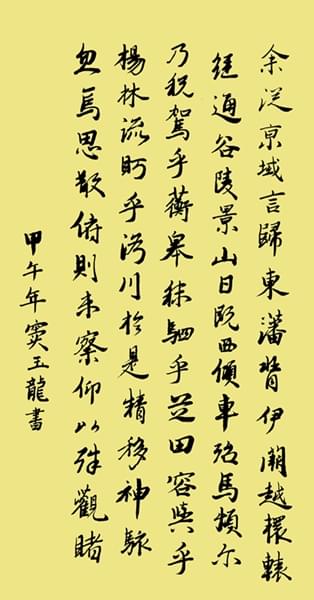 余從京域言歸東藩背伊闕越轘轅
經通谷陵景山日既西傾車殆馬煩尔
乃税駕乎蘅皋秣駟乎芝田容與乎
楊林流眄乎洛川於是精移神駭
忽焉思散俯則未察仰以殊觀睹
甲午年窦玉龍書